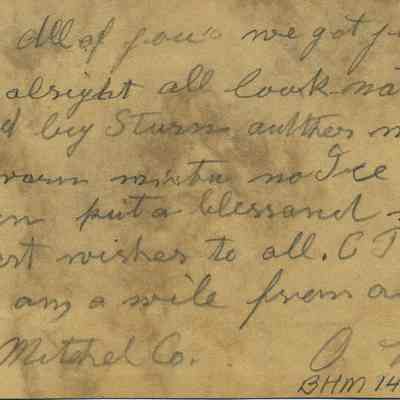 All of you's we got
alsight all look na
d by Sturn authers
warm no Ice
put a blessand
est wishes to all. C T
am a mile from a
Mitchel Co. O.
BHM 14